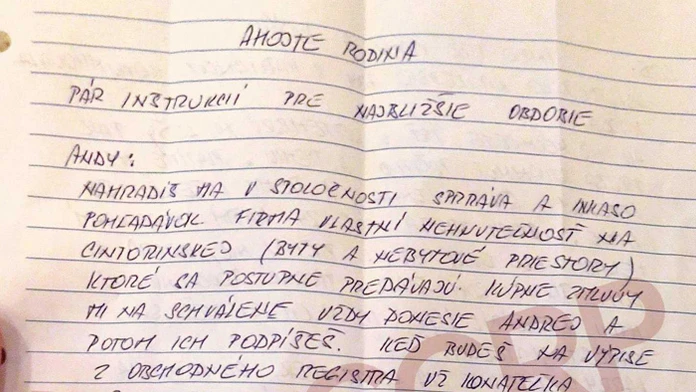 AHOJTE RODINA
PÁR INŠTRUKCIÍ PRE NAJBLIŽŠIE OBDOBIE
ANDY:
NAHRADÍŠ MA V SPOLOČNOSTI SPRÁVA A INKASO
POHĽADÁVOK. FIRMA VLASTNÍ NEHNUTEĽNOSŤ NA
CINTORINSKEJ (BYTY A NEBYTOVÉ PRIESTORY)
KTORÉ SA POSTUPNE PREDÁVAJÚ. KÚPNE ZMLUVY
MI NA SCHVÁLENIE VŽDY DONESIE ANDREJ A
POTOM ICH PODPÍŠEŠ. KEĎ BUDEŠ NA VÝPISE
Z OBCHODNÉHO REGISTRA UŽ KONATEČKA